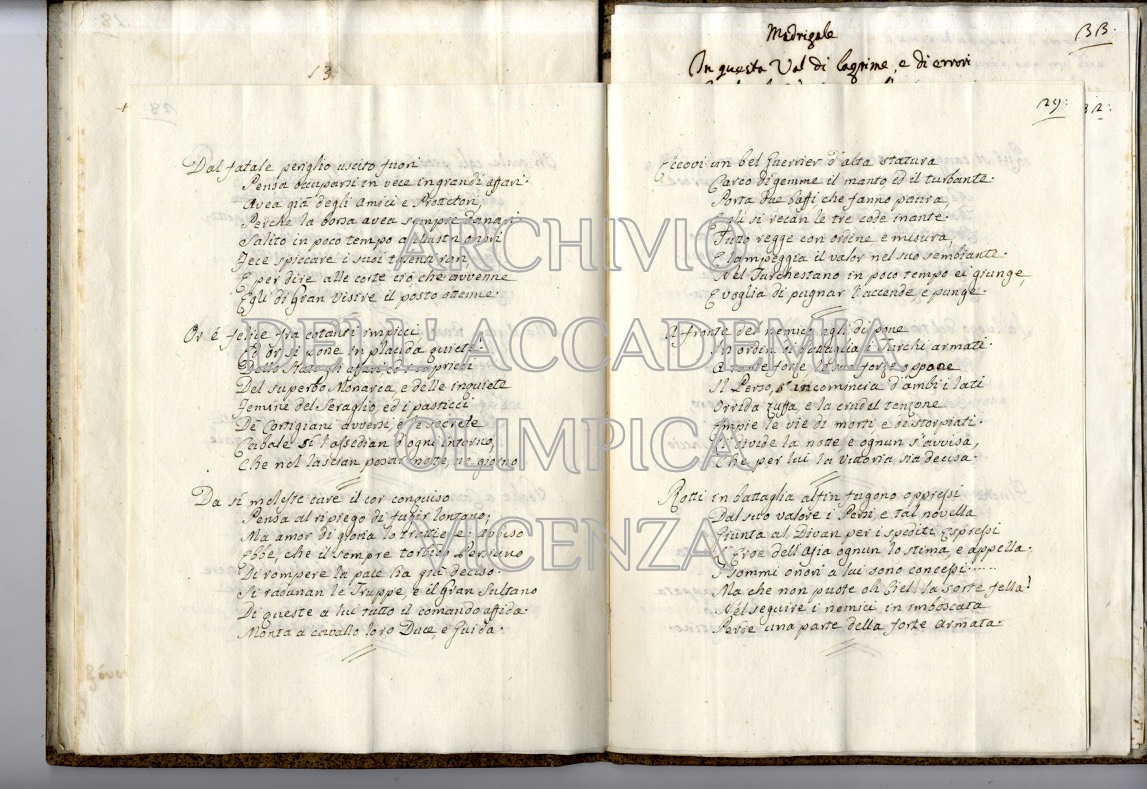 13
Dal fatale periglio uscito fuori
Pensa occuparsi in vece in grandi affari.
Avea già degli Amici e Protettori,
Perchè la borsa avea sempre danari.
Salito in poco tempo a illustri onori
Fece spiccare i suoi talenti rari,
E per dire alle corte ciò, che avvenne
Egli di Gran Visire il posto ottenne.
Or é felice fra cotanti impicci
Ed or si pone in placida quiete.
Dello Stato gli affari
Del superbo Monarca, e delle inquiete
Femine del Seraglio, ed i pasticci
De' Cortigiani avversi, e le secrete
Cabale sì l'assedian d'ogni intorno,
Che nol lascian posar notte, ne giorno
Da sì moleste cure il cor conquiso
Pensa al ripiego di fugir lontano;
Ma amor di gloria lo trattiene. avviso
Ebbe, che il sempre torbido Persiano
Di rompere la pace ha già deciso.
Si radunan le Truppe, e il Gran Sultano
Di queste a lui tutto il comando affida
Monta a cavallo loro Duce, e Guida.
Madrigale
33.
In questa Val di lagrime, e di errori
32:
29:
Eccovi un bel Guerrier d'alta statura
Carco di gemme il manto ed il turbante.
Porta due baffi che fanno paura,
Egli si recan le tre code inante.
Tutto regge con ordine e misura,
E lampeggia il valor nel suo sembiante.
Nel Turchestano in poco tempo ei giunge,
E voglia di pugnar l'accende e punge.
A fronte del nemico egli dispone
In ordin di battaglia i Turchi armati.
A tante forze le sue forze oppone
Il Perso, e s'incomincia d'ambi i lati
Orrida zuffa, e la crudel tenzone
Empie le vie di morti, e di storpiati.
Li divide la notte e ognun s'avvisa,
Che per lui la Vittoria sia decisa.
Rotti in battaglia alfin fugono oppressi
Dal suo valore i Persi, e tal novella
Giunta al Divan per i spediti espressi
Eroe dell'Asia ognun lo stima, e appella.
I sommi onori a lui sono concessi......
Ma che non puote oh Ciel! la sorte fella!
Nel seguire i nemici in imboscata
Perde una parte della forte Armata.
ARCHIVIO
DELL'ACCADEMIA
OLIMPICA
VICENZA